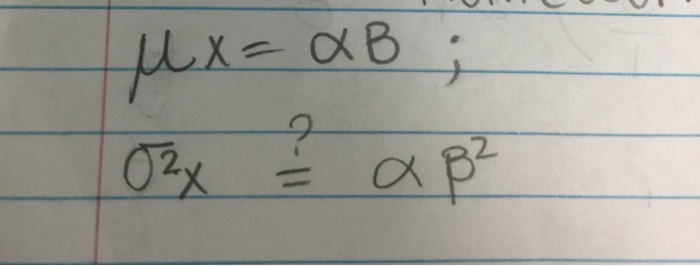 μx = αB ;
σ²x ≟ αβ²